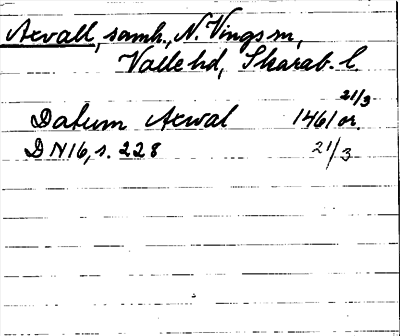 Axvall, samh., N. Vings sn,
Valle hd, Skarab. l.
21/3
Datum Axwal 1461 or.
DN16, s. 228 21/3